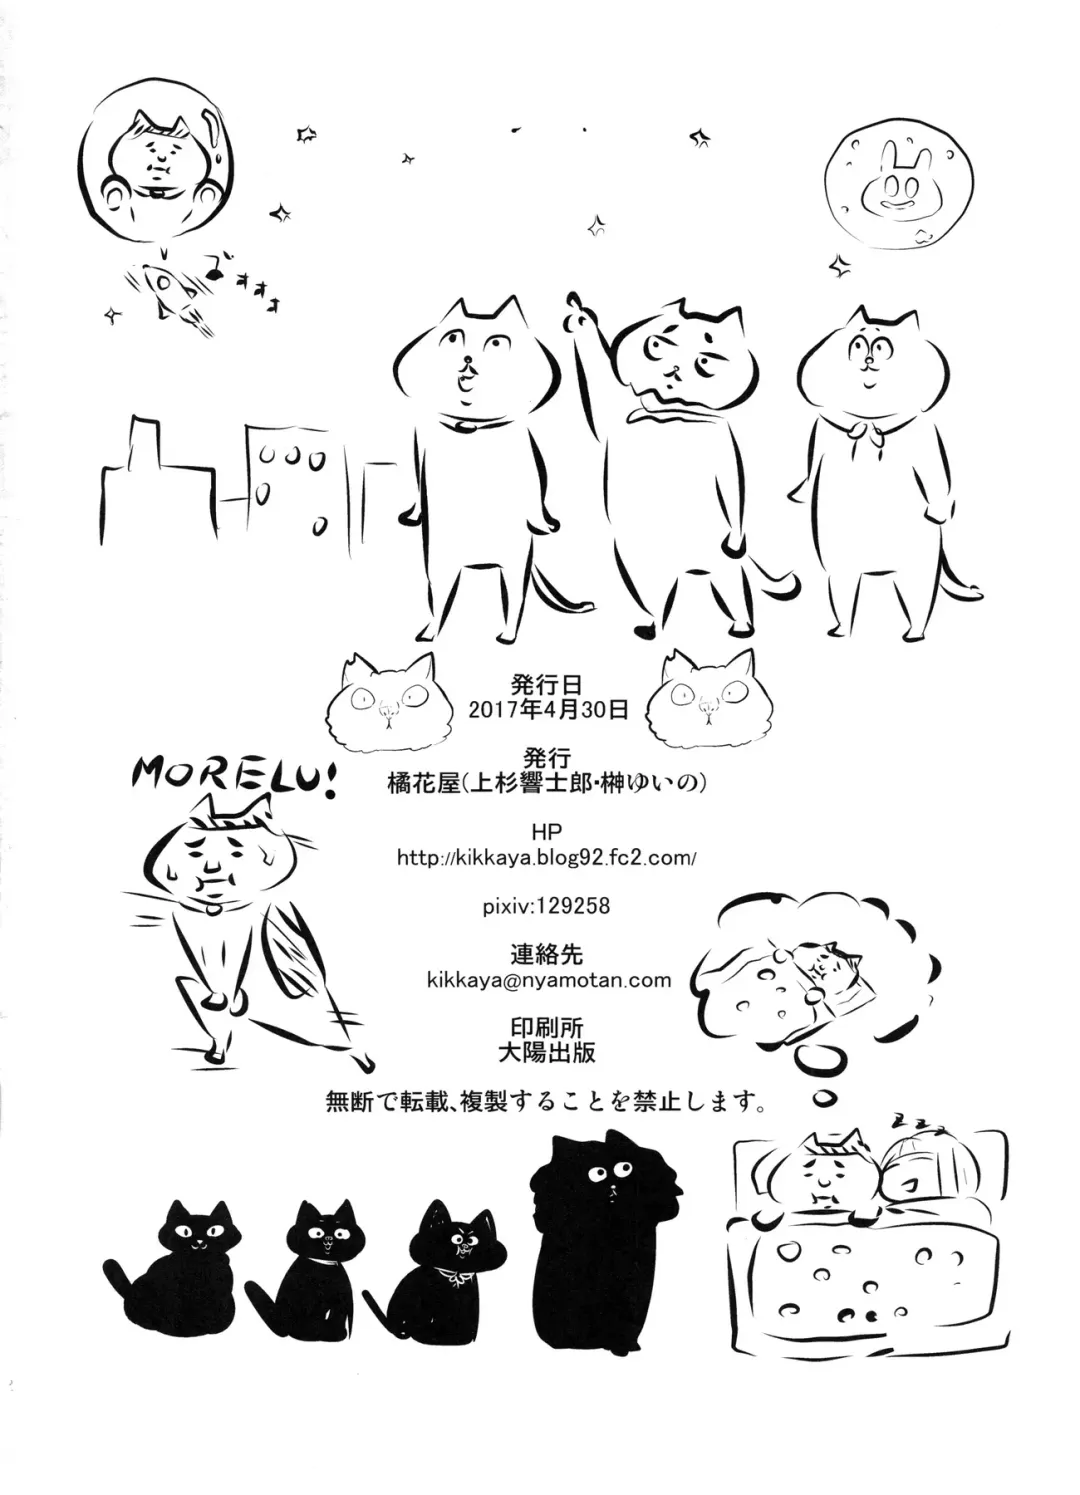 ゴォォォ
発行日
2017年4月30日
MORELU!
発行
橘花屋(上杉響士郎・榊ゆいの)
HP
http://kikkaya.blog92.fc2.com/
pixiv:129258
連絡先
kikkaya@nyamotan.com
印刷所
大陽出版
無断で転載、複製することを禁止します。
zzz